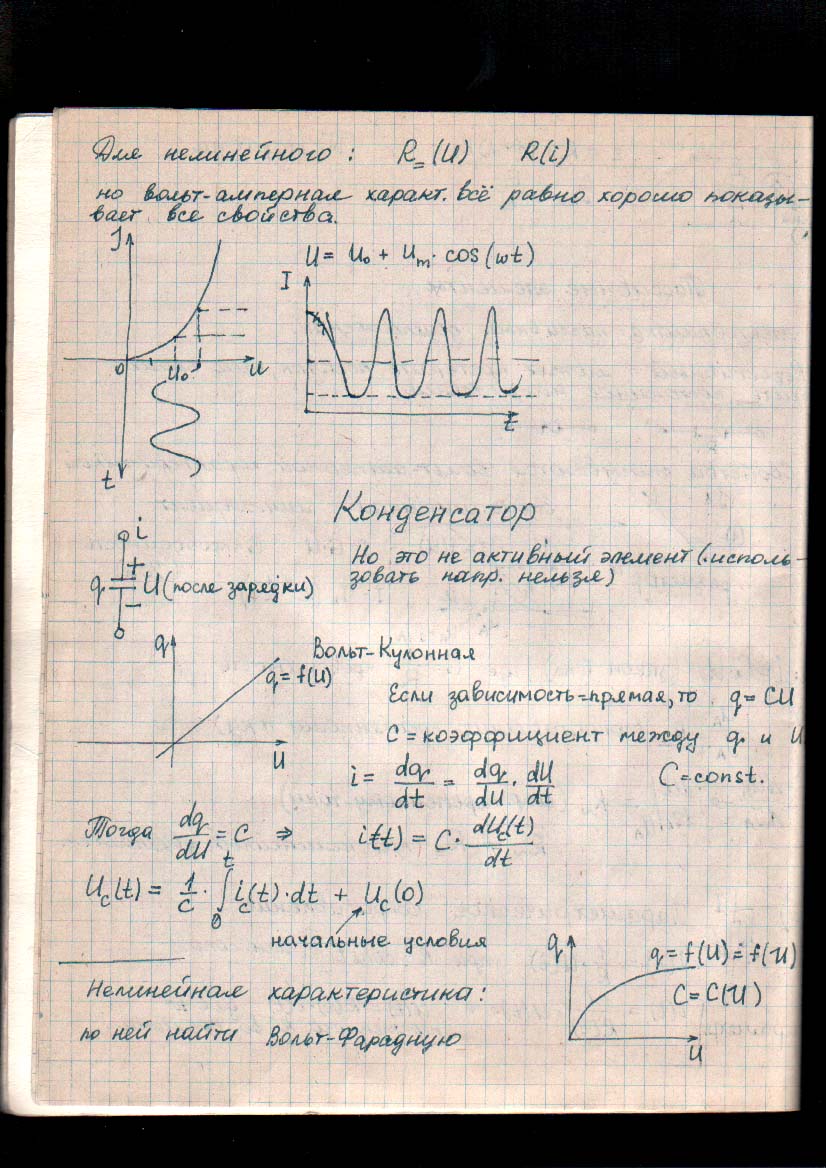 Для нелинейного : R₌(U) R(i)
но вольт-амперная характ. всё равно хорошо показы-
вает все свойства.
J
U = U₀ + Uₘ· cos(ωt)
I
0
U₀
U
t
t
Конденсатор
i
Но это не активный элемент (исполь-
зовать напр. нельзя)
+
q U (после зарядки)
−
q
Вольт-Кулонная
q = f(U)
Если зависимость=прямая, то q = CU
C = коэффициент между q и U
U
i = dq/dt = dq/dU · dU/dt C = const.
Тогда dq/dU = C ⇒ i(t) = C · dU_c(t)/dt
U_c(t) = 1/C · ∫₀ᵗ i_c(t)·dt + U_c(0)
начальные условия
q
q = f(U) = f(U)
C = C(U)
U
Нелинейная характеристика :
по ней найти Вольт-Фарадную